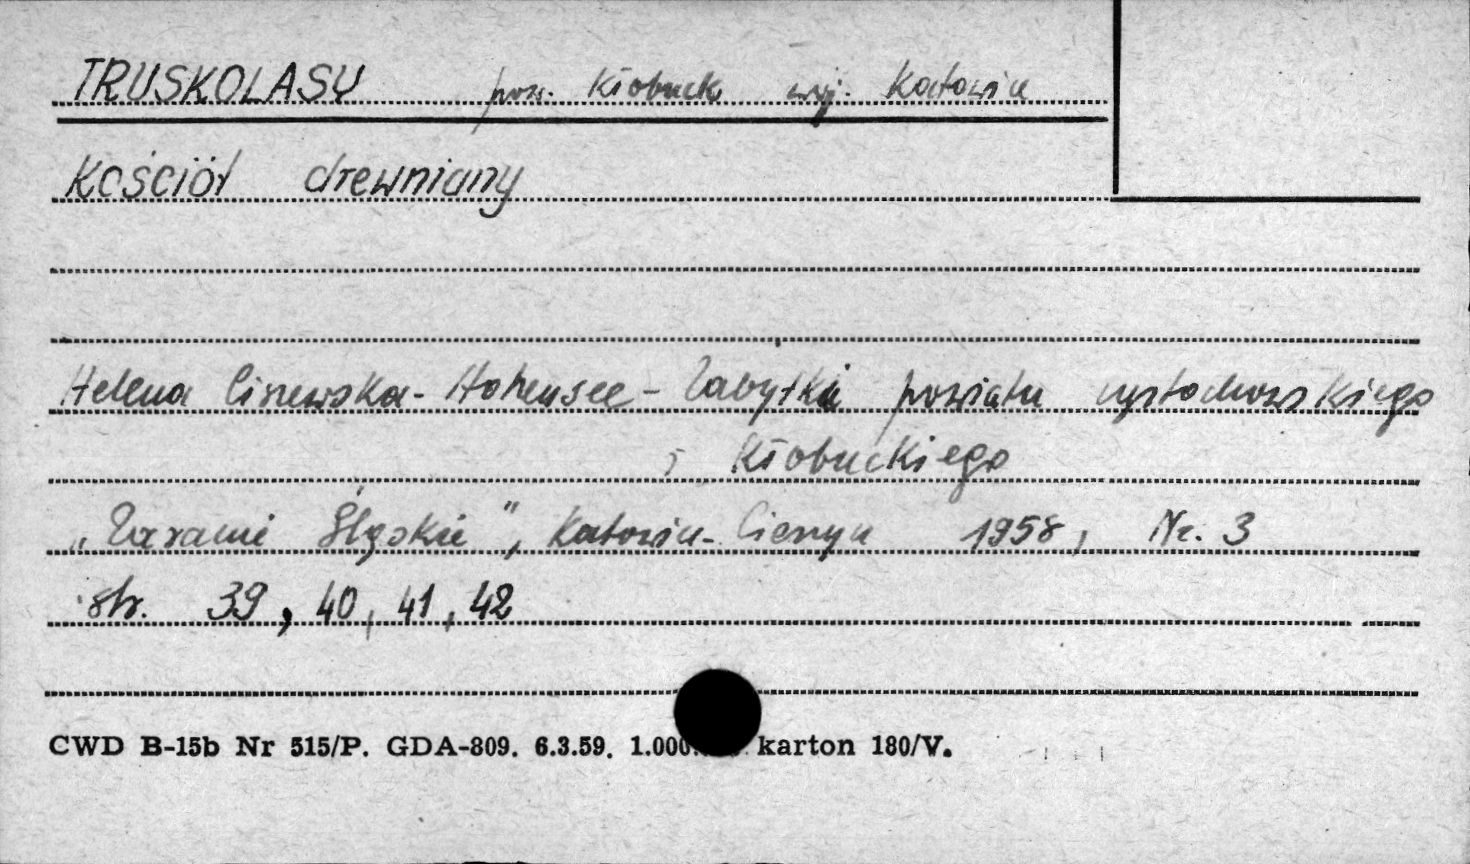 TRUSKOLASY pow. Kłobuck woj. Katowice
Kościół drewniany
Helena Ciszewska-Hohensee - Zabytki powiatu częstochowskiego
i Kłobuckiego
„Zaranie Śląskie", Katowice-Cieszyn 1958, Nr. 3
str. 39, 40, 41, 42
CWD B-15b Nr 515/P. GDA-809. 6.3.59. 1.000. karton 180/V.